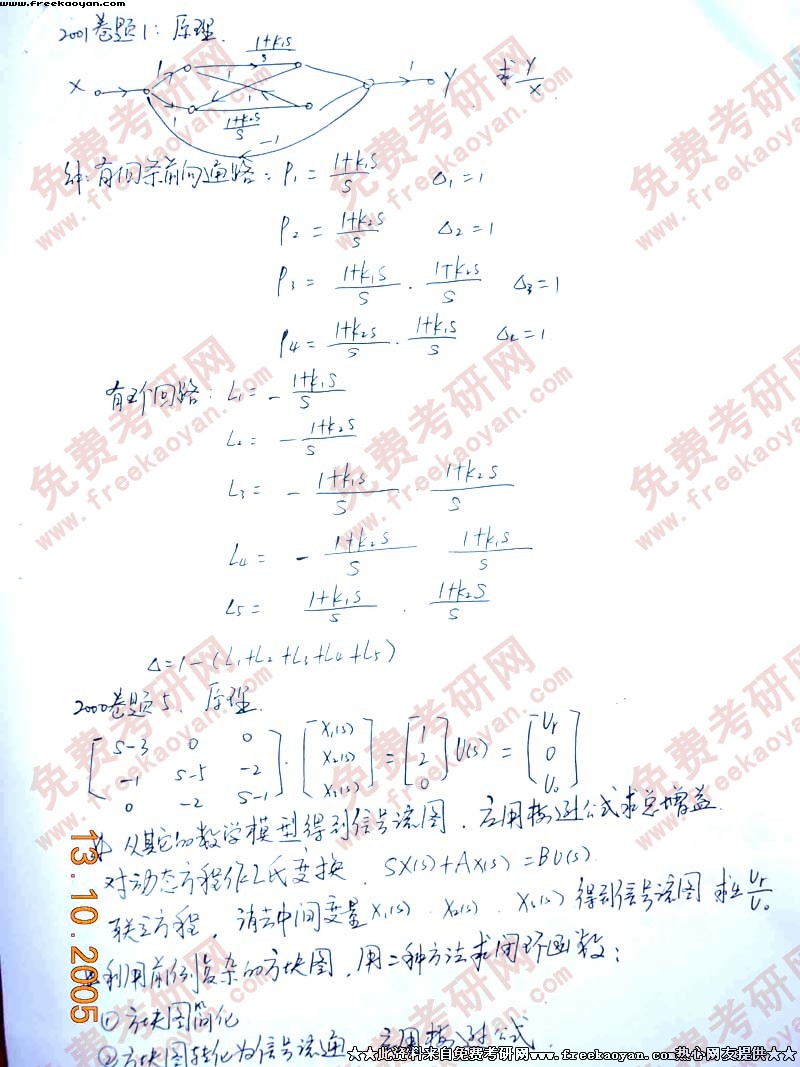 www.freekaoyan.com
www.freekaoyan.com
2001卷题1: 原理.
1+k₁s
s
X 1 1 1 Y 求 Y/X
1 1
1+k₂s
s
-1
解: 有四条前向通路: P₁ = (1+k₁s)/s Δ₁=1
P₂ = (1+k₂s)/s Δ₂=1
P₃ = (1+k₁s)/s · (1+k₂s)/s Δ₃=1
P₄ = (1+k₂s)/s · (1+k₁s)/s Δ₄=1
有五个回路: L₁ = - (1+k₁s)/s
L₂ = - (1+k₂s)/s
L₃ = - (1+k₁s)/s (1+k₂s)/s
L₄ = - (1+k₂s)/s (1+k₁s)/s
L₅ = (1+k₁s)/s · (1+k₂s)/s
Δ=1-(L₁+L₂+L₃+L₄+L₅)
2000卷题5. 原理.
[s-3 0 0; -1 s-5 -2; 0 -2 s-1] · [X₁(s); X₂(s); X₃(s)] = [1; 2; 0] U(s) = [Ur; 0; U₀]
从其它的数学模型得到信号流图. 应用梅逊公式求总增益.
对动态方程作L氏变换. SX(s)+AX(s)=BU(s).
联立方程, 消去中间变量 X₁(s) X₂(s) X₃(s) 得到信号流图 求出 Ur/U₀
利用前例复杂的方块图, 用二种方法求闭环函数:
① 方块图简化
② 方块图转化为信号流通 应用梅逊公式.
13.10.2005
免费考研网
www.freekaoyan.com
★★此资料来自免费考研网www.freekaoyan.com热心网友提供★★